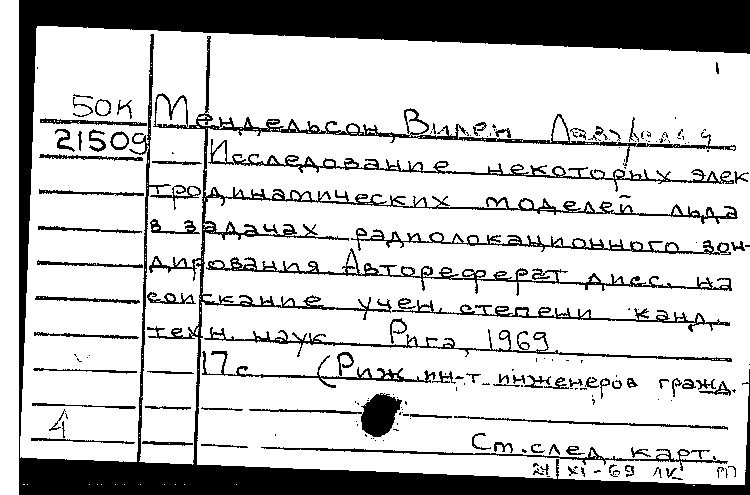 1
50К Мендельсон, Вилен
21509 Исследование некоторых элек
тродинамических моделей льда
в задачах радиолокационного зон-
дирования Автореферат дисс. на
соискание учен. степени канд.
техн. наук Рига, 1969
17 с (Риж. ин-т инженеров гражд.-
4
Ст. след. карт.
21/XI-69 ЛК РП